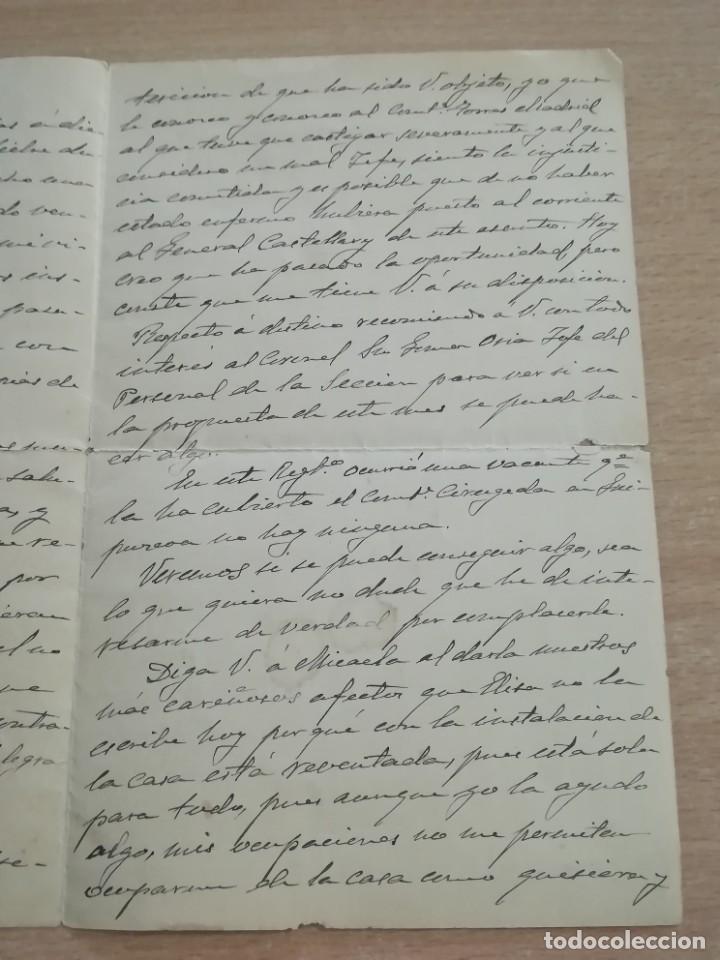 as á dia
cho una
do ven-
mi vi-
as ins-
pasa-
con
rias de
salu-
as, y
re-
por
ieran
el no
me
ontra-
legra
se-
de que ha sido V. objeto, yo que
le conozco y conozco al Comte. Torres Madrid
al que tuve que castigar severamente y al que
considero un mal Jefe, siento la injusti-
cia cometida y es posible que de no haber
estado enfermo hubiera puesto al corriente
al General Castellary de este asunto. Hoy
creo que ha pasado la oportunidad, pero
conste que me tiene V. á su disposicion.
Respecto á destino recomiendo á V. con todo
interes al Coronel Jefe del
Personal de la Seccion para ver si en
la propuesta de este mes se puede ha-
cer algo.
En este Regto. ocurrió una vacante qe
la ha cubierto el Comte. Cirugeda en
no hay ninguna.
Veremos si se puede conseguir algo, sea
lo que quiera no dude que he de inte-
resarme de verdad por complacerle.
Diga V. á Micaela al darla nuestros
más cariñosos afectos que Elisa no la
escribe hoy porqué con la instalacion de
la casa está reventada, pues está sola
para todo, pues aunque yo la ayudo
algo, mis ocupaciones no me permiten
ocuparme de la casa como quisiera y
todocoleccion